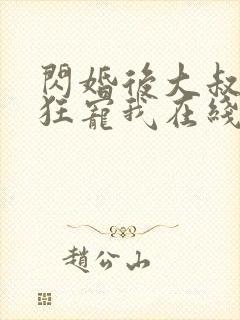 閃婚後大叔
狂寵我在綫
趙公山